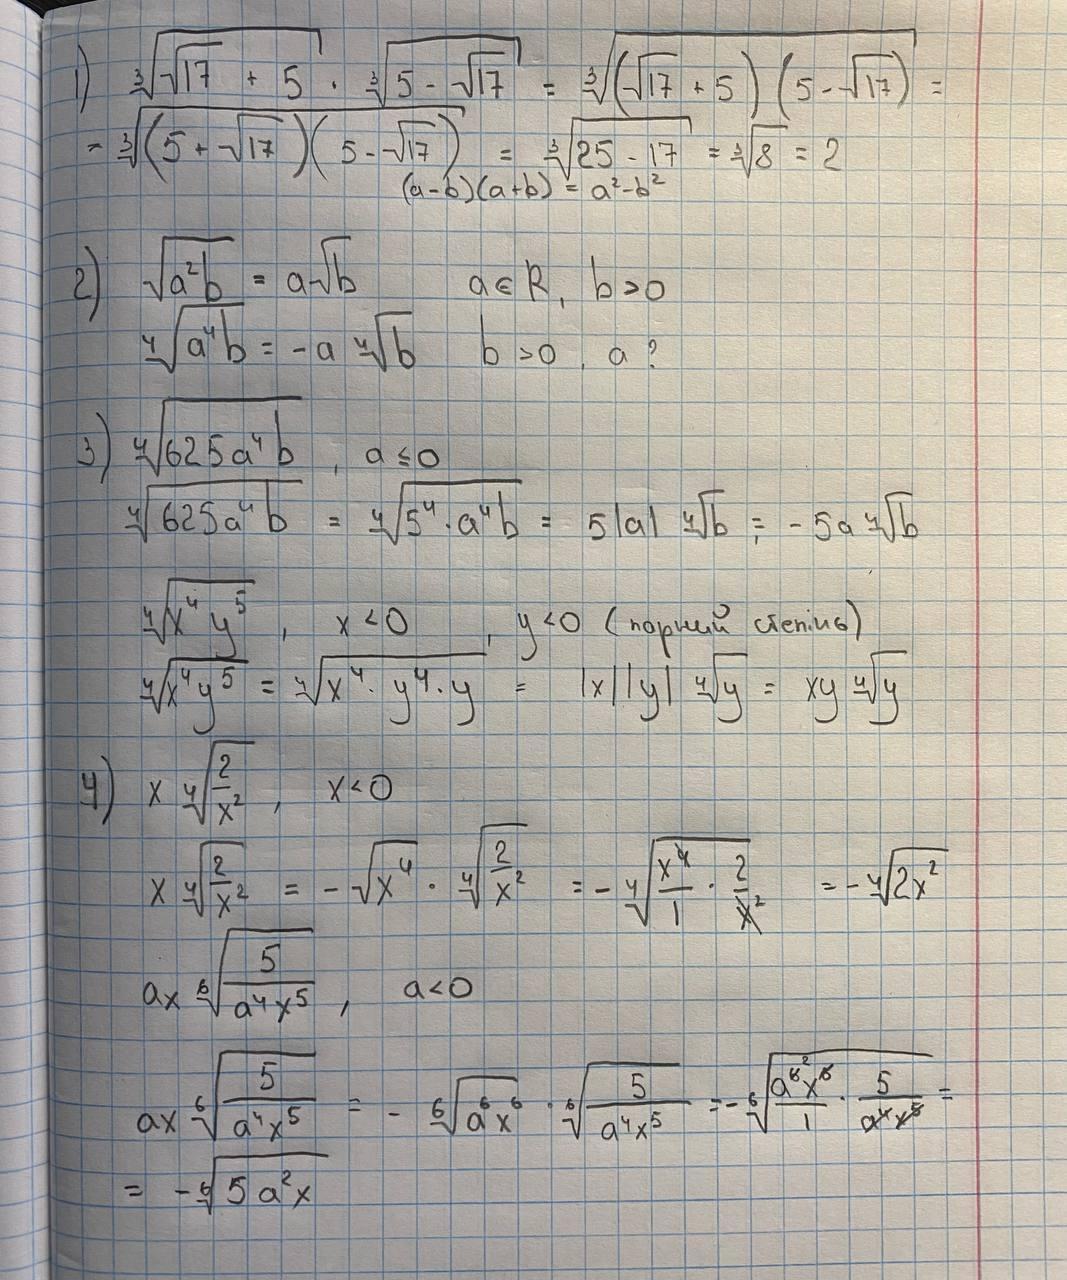 1) ∛(√17 + 5) · ∛(5 - √17) = ∛((√17 + 5)(5 - √17)) =
= ∛((5 + √17)(5 - √17)) = ∛(25 - 17) = ∛8 = 2
(a-b)(a+b) = a²-b²
2) √(a²b) = a√b a∈R, b>0
∜(a⁴b) = -a ∜b b>0, a?
3) ∜(625a⁴b), a≤0
∜(625a⁴b) = ∜(5⁴·a⁴b) = 5|a| ∜b = -5a ∜b
∜(x⁴y⁵), x<0, y<0 (парний степінь)
∜(x⁴y⁵) = ∜(x⁴·y⁴·y) = |x||y| ∜y = xy ∜y
4) x ∜(2/x²), x<0
x ∜(2/x²) = -√(x⁴) · ∜(2/x²) = -∜(x⁴/1 · 2/x²) = -∜(2x²)
ax ⁶√(5/(a⁴x⁵)), a<0
ax ⁶√(5/(a⁴x⁵)) = - ⁶√(a⁶x⁶) · ⁶√(5/(a⁴x⁵)) = - ⁶√(a⁶²x⁶/1 · 5/(a⁴x⁵)) =
= -⁶√(5a²x)